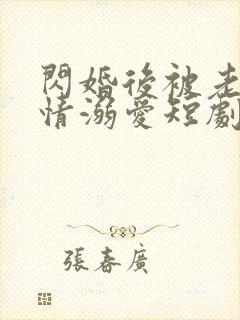 閃婚後被老
情溺愛短劇
張春廣